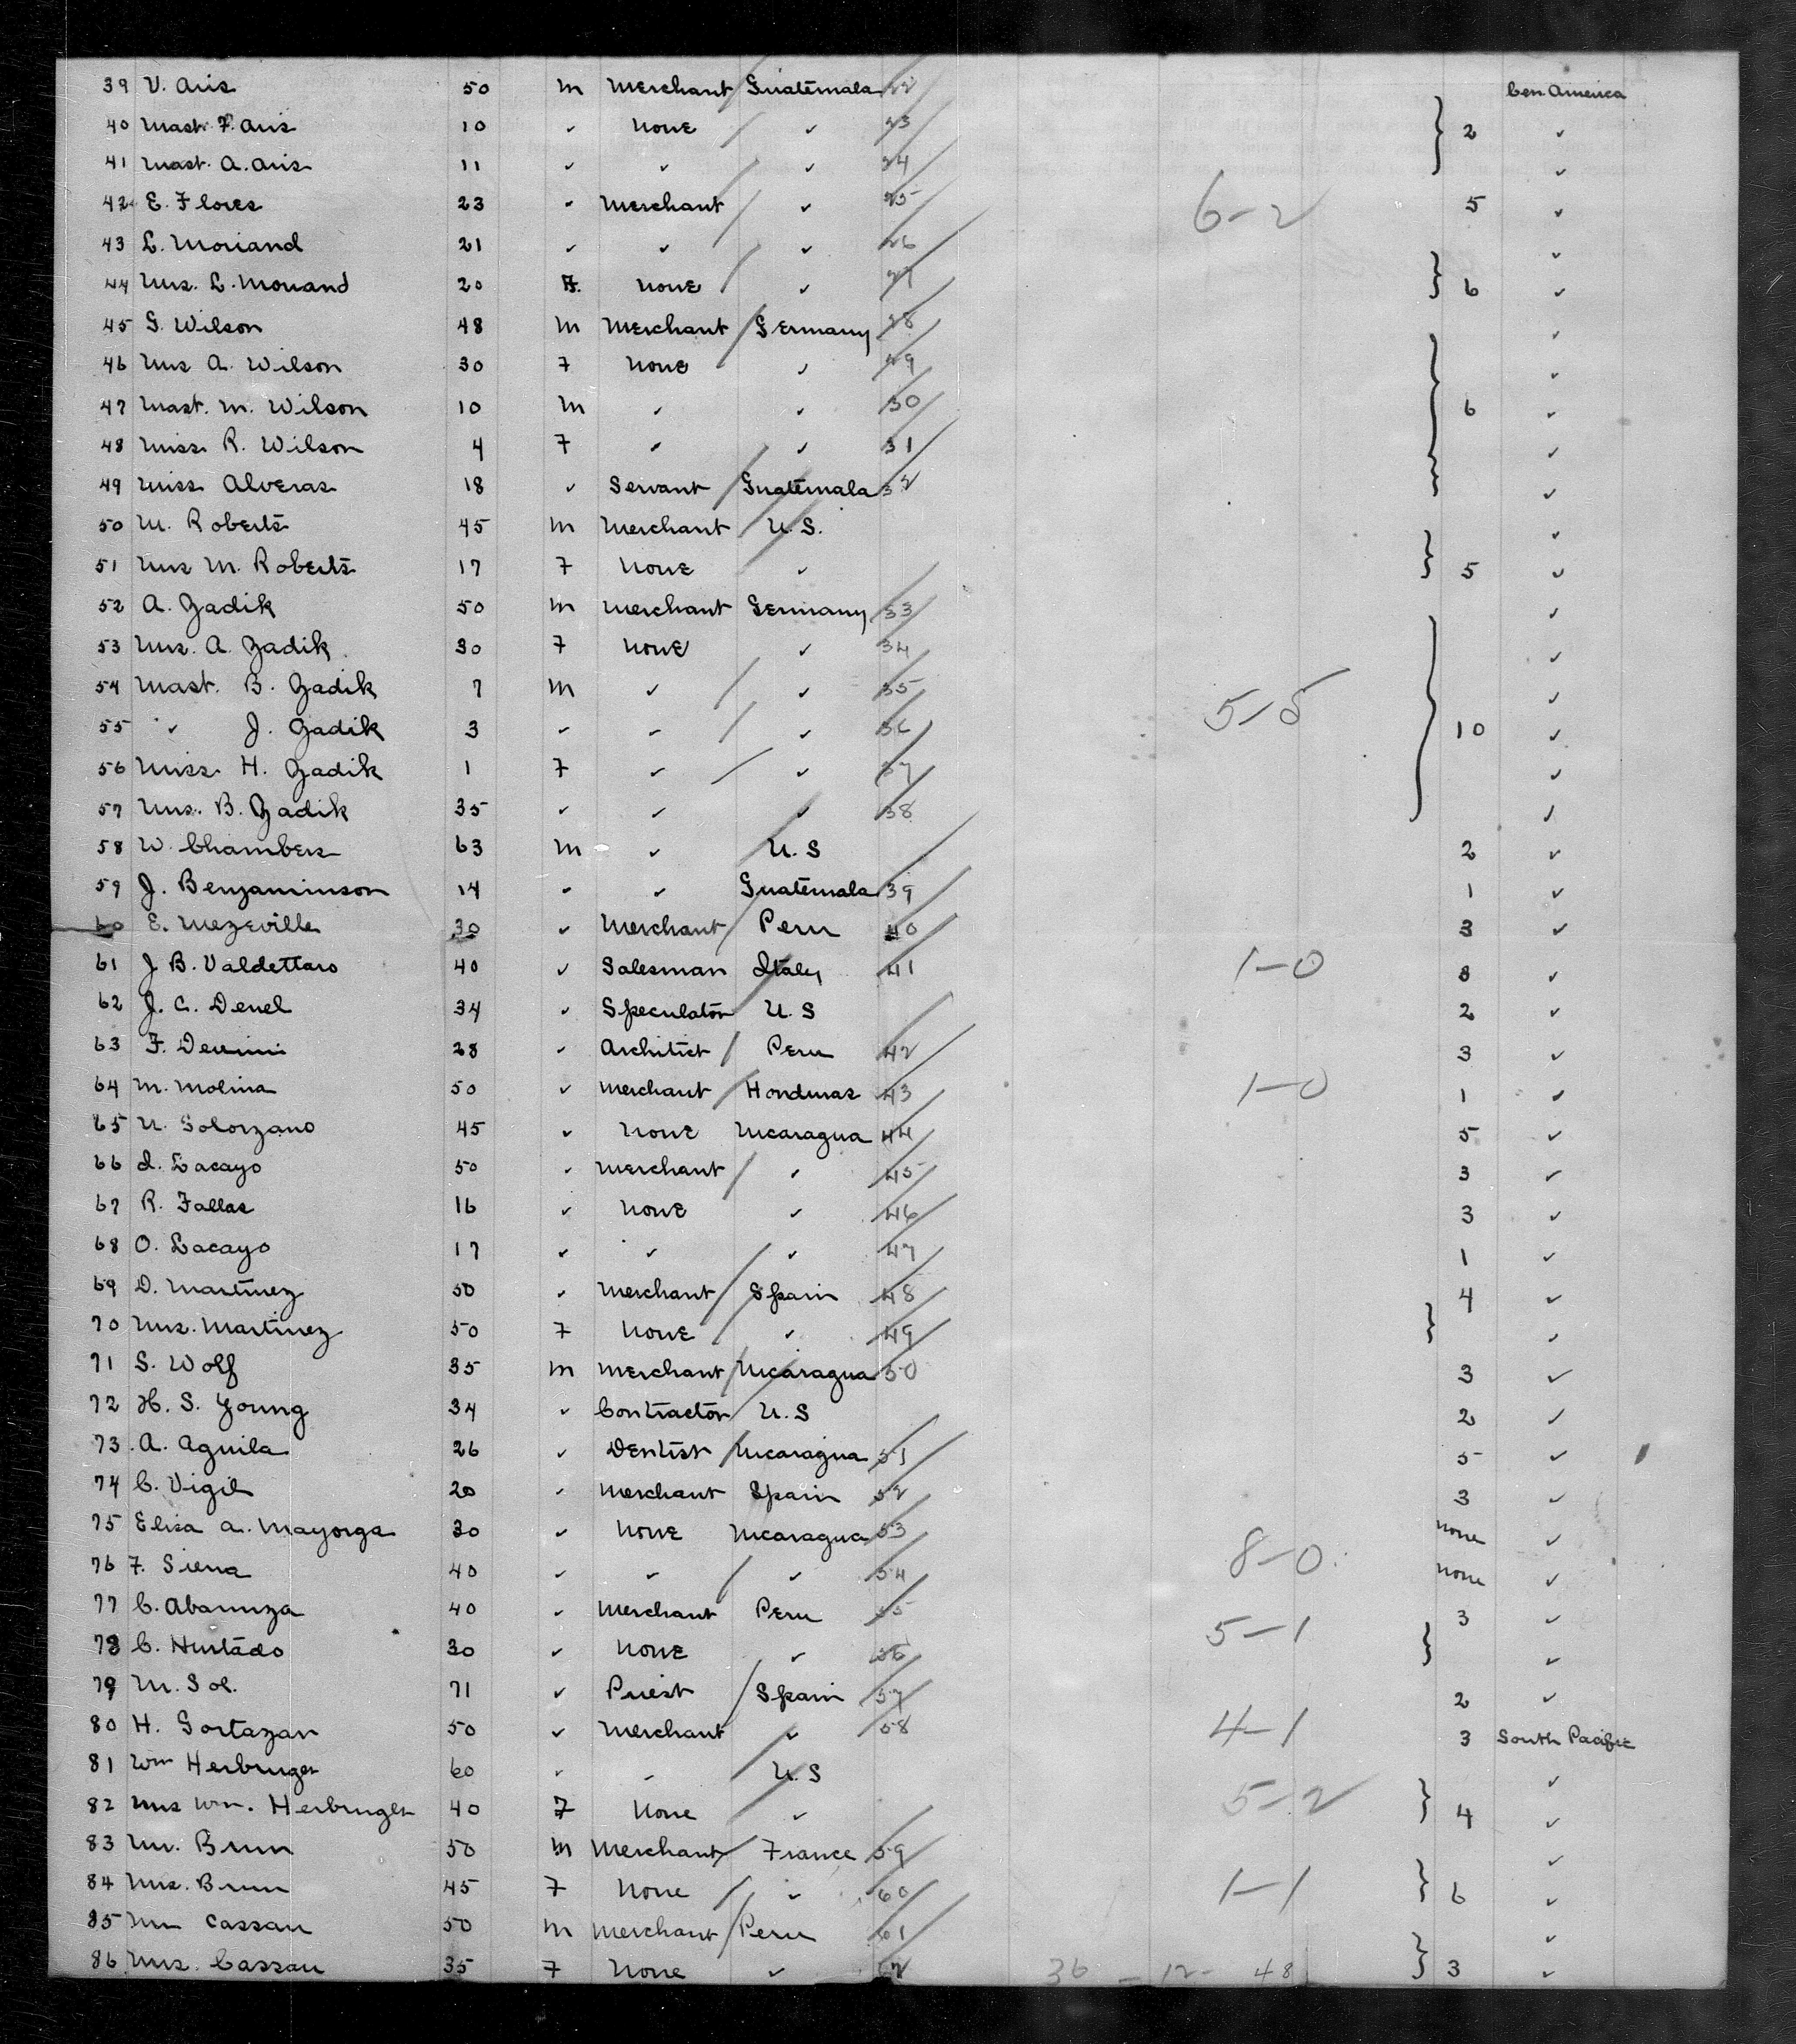 39 V. Aris 50 m Merchant Guatemala 22 Cen. America
40 Mast. F. Aris 10 ✓ None ✓ 23 } 2 ✓
41 Mast. A. Aris 11 ✓ ✓ ✓ 24 ✓
42 E. Flores 23 ✓ Merchant ✓ 25 6-2 5 ✓
43 L. Moriand 21 ✓ ✓ ✓ 26 ✓
44 Mrs. L. Moriand 20 F. None ✓ 27 } 6 ✓
45 G. Wilson 48 m Merchant Germany 28 ✓
46 Mrs A. Wilson 30 F None ✓ 29 ✓
47 Mast. M. Wilson 10 m ✓ ✓ 30 } 6 ✓
48 Miss R. Wilson 4 F ✓ ✓ 31 ✓
49 Miss Alveras 18 ✓ Servant Guatemala 32 ✓
50 M. Roberts 45 m Merchant U.S. ✓
51 Mrs M. Roberts 17 F None ✓ } 5 ✓
52 A. Zadik 50 m Merchant Germany 33 ✓
53 Mrs. A. Zadik 30 F None ✓ 34 ✓
54 Mast. B. Zadik 7 m ✓ ✓ 35 5-5 ✓
55 ✓ J. Zadik 3 ✓ ✓ ✓ 36 } 10 ✓
56 Miss. H. Zadik 1 F ✓ ✓ 37 ✓
57 Mrs. B. Zadik 35 ✓ ✓ ✓ 38 ✓
58 W. Chambers 63 m ✓ U.S 2 ✓
59 J. Benjaminson 14 ✓ ✓ Guatemala 39 1 ✓
60 E. Mezeville 30 ✓ Merchant Peru 40 3 ✓
61 J B. Valdettaro 40 ✓ Salesman Italy 41 1-0 8 ✓
62 J. C. Denel 34 ✓ Speculator U.S 2 ✓
63 F. 28 ✓ Architict Peru 42 3 ✓
64 M. Molina 50 ✓ Merchant Honduras 43 1-0 1 ✓
65 N. Solorzano 45 ✓ None Nicaragua 44 5 ✓
66 I. Lacayo 50 ✓ Merchant ✓ 45 3 ✓
67 R. Fallas 16 ✓ None ✓ 46 3 ✓
68 O. Lacayo 17 ✓ ✓ ✓ 47 1 ✓
69 D. Martinez 50 ✓ Merchant Spain 48 4 ✓
70 Mrs. Martinez 50 F None ✓ 49 } ✓
71 S. Wolf 35 m Merchant Nicaragua 50 3 ✓
72 H. S. Young 34 ✓ Contractor U.S 2 ✓
73 A. Aguila 26 ✓ Dentist Nicaragua 51 5 ✓
74 C. Vigil 20 ✓ Merchant Spain 52 3 ✓
75 Elisa A. Mayorga 30 ✓ None Nicaragua 53 None ✓
76 F. Siena 40 ✓ ✓ ✓ 54 8-0 None ✓
77 C. Abaunza 40 ✓ Merchant Peru 55 3 ✓
78 C. Hurtado 30 ✓ None ✓ 56 5-1 } ✓
79 M. Sol. 71 ✓ Priest Spain 57 2 ✓
80 H. Gortazar 50 ✓ Merchant ✓ 58 4-1 3 South Pacific
81 Wm Herbruger 60 ✓ ✓ U.S ✓
82 Mrs Wm. Herbruger 40 F None ✓ 5-2 } 4 ✓
83 Mr. Brun 50 m Merchant France 59 ✓
84 Mrs. Brun 45 F None ✓ 60 1-1 } 6 ✓
85 Mr Cassau 50 m Merchant Peru 61 ✓
86 Mrs. Cassau 35 F None ✓ 62 36 - 12 - 48 } 3 ✓